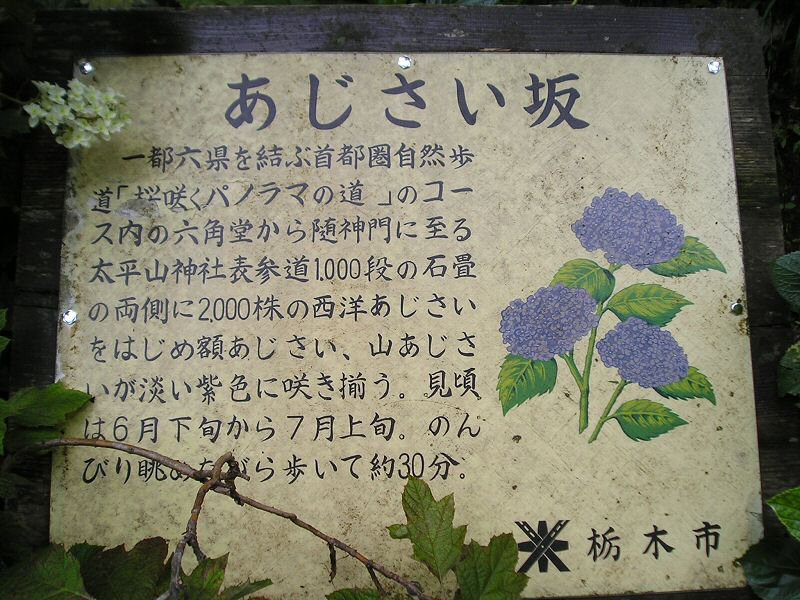 あじさい坂
一都六県を結ぶ首都圏自然歩
道「桜咲くパノラマの道」のコー
ス内の六角堂から随神門に至る
太平山神社表参道1,000段の石畳
の両側に2,000株の西洋あじさい
をはじめ額あじさい、山あじさ
いが淡い紫色に咲き揃う。見頃
は6月下旬から7月上旬。のん
びり眺めながら歩いて約30分。
栃木市